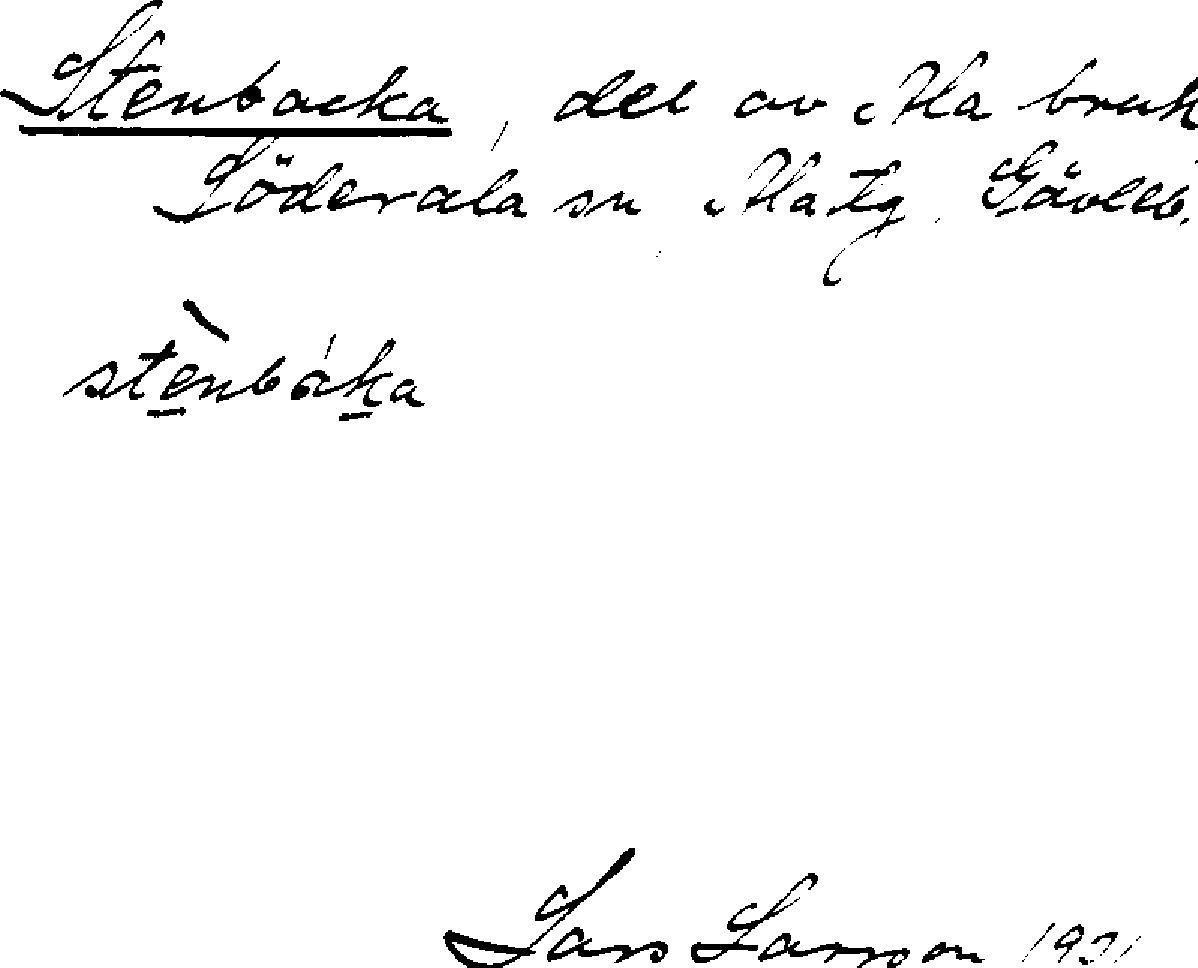 Stenbacka, del av Ala bruk
Söderala sn Ala tg. Gävleb.
stènbáka
Lars Larsson 1931